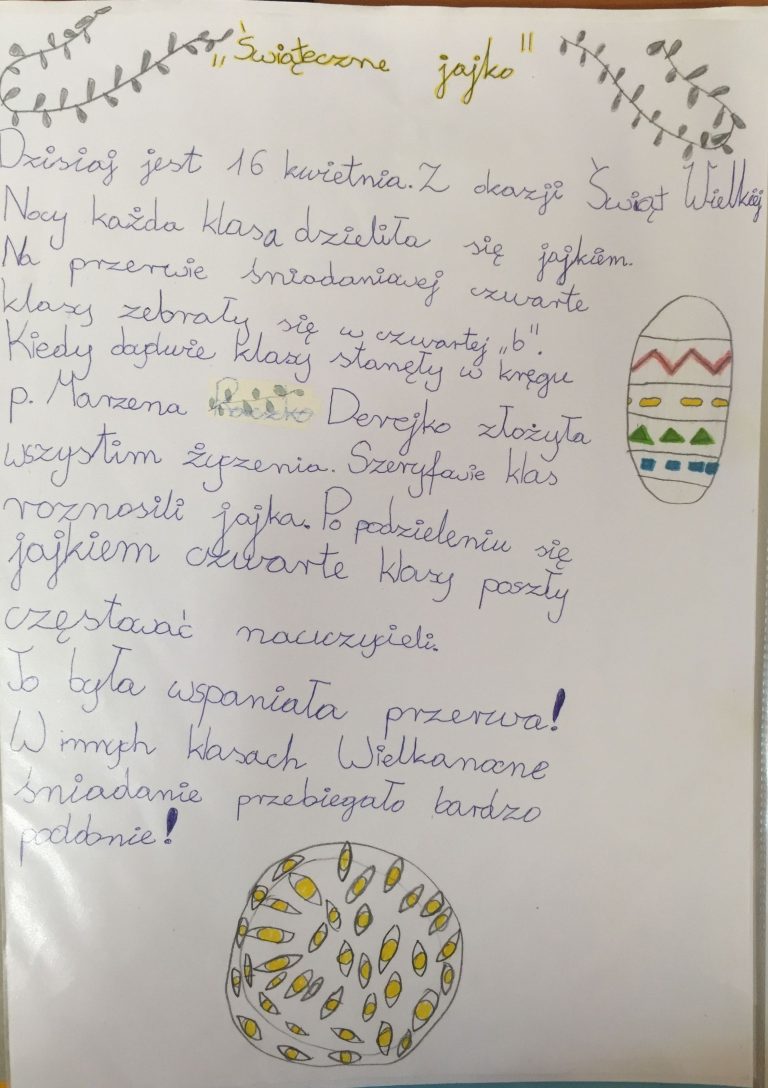 „Świąteczne jajko"
Dzisiaj jest 16 kwietnia. Z okazji Świąt Wielkiej
Nocy każda klasa dzieliła się jajkiem.
Na przerwie śniadaniowej czwarte
klasy zebrały się w czwartej „b".
Kiedy dwie klasy stanęły w kręgu
p. Marzena Derejko złożyła
wszystim życzenia. Szeryfowie klas
roznosili jajka. Po podzieleniu się
jajkiem czwarte klasy poszły
częstować nauczycieli.
To była wspaniała przerwa!
W innych klasach Wielkanocne
śniadanie przebiegało bardzo
podobnie!